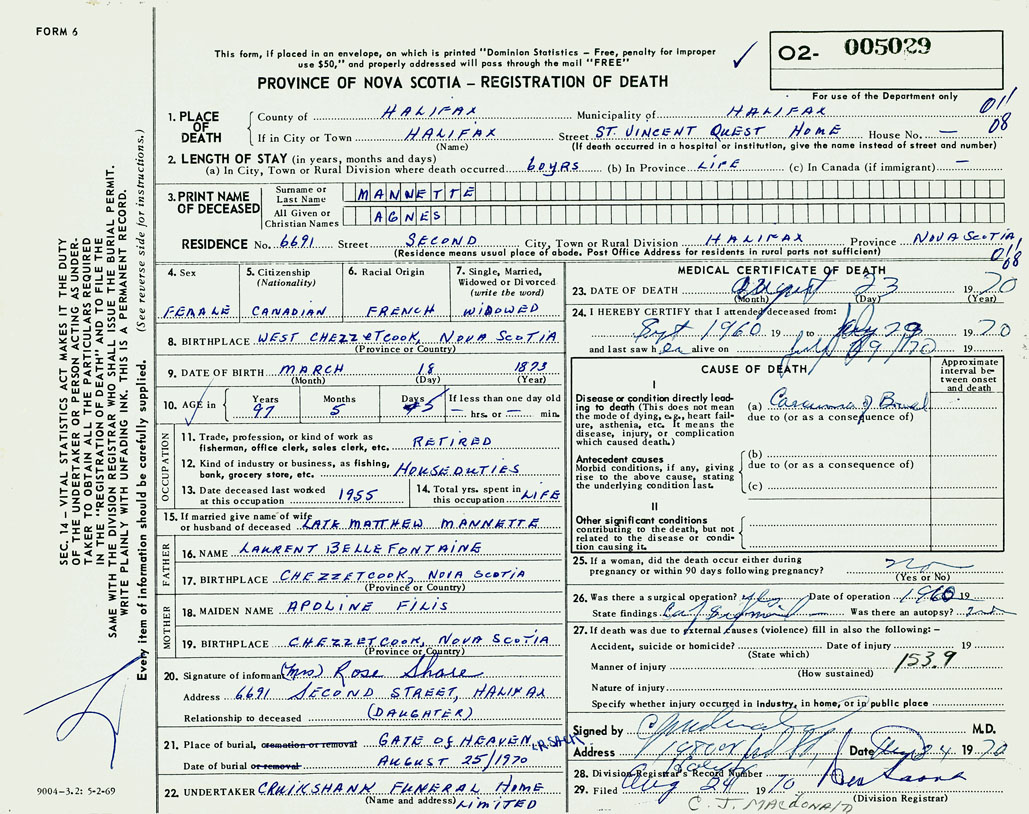 FORM 6
This form, if placed in an envelope, on which is printed "Dominion Statistics – Free, penalty for improper
use $50," and properly addressed will pass through the mail "FREE"
O2- 005029
PROVINCE OF NOVA SCOTIA – REGISTRATION OF DEATH
For use of the Department only
011
08
1. PLACE OF DEATH
County of HALIFAX Municipality of HALIFAX
If in City or Town HALIFAX Street ST. VINCENT QUEST HOME House No. —
(Name) (If death occurred in a hospital or institution, give the name instead of street and number)
2. LENGTH OF STAY (in years, months and days)
(a) In City, Town or Rural Division where death occurred 60 YRS (b) In Province LIFE (c) In Canada (if immigrant) —
3. PRINT NAME OF DECEASED
Surname or Last Name MANNETTE
All Given or Christian Names AGNES
RESIDENCE No. 6691 Street SECOND City, Town or Rural Division HALIFAX Province NOVA SCOTIA
(Residence means usual place of abode. Post Office Address for residents in rural parts not sufficient)
4. Sex
FEMALE
5. Citizenship (Nationality)
CANADIAN
6. Racial Origin
FRENCH
7. Single, Married, Widowed or Divorced (write the word)
WIDOWED
8. BIRTHPLACE WEST CHEZZETCOOK, NOVA SCOTIA
(Province or Country)
9. DATE OF BIRTH MARCH 18 1873
(Month) (Day) (Year)
10. AGE in Years 97 Months 5 Days 5 If less than one day old — hrs. or — min.
OCCUPATION
11. Trade, profession, or kind of work as
fisherman, office clerk, sales clerk, etc. RETIRED
12. Kind of industry or business, as fishing,
bank, grocery store, etc. HOUSE DUTIES
13. Date deceased last worked
at this occupation 1955
14. Total yrs. spent in
this occupation LIFE
15. If married give name of wife
or husband of deceased LATE MATTHEW MANNETTE
FATHER
16. NAME LAURENT BELLEFONTAINE
17. BIRTHPLACE CHEZZETCOOK, NOVA SCOTIA
(Province or Country)
MOTHER
18. MAIDEN NAME APOLINE FILIS
19. BIRTHPLACE CHEZZETCOOK, NOVA SCOTIA
(Province or Country)
20. Signature of informant (Mrs) Rose Share
Address 6691 SECOND STREET, HALIFAX
Relationship to deceased (DAUGHTER)
21. Place of burial, cremation or removal GATE OF HEAVEN
Date of burial or removal AUGUST 25/1970
22. UNDERTAKER CRUIKSHANK FUNERAL HOME
(Name and address) LIMITED
MEDICAL CERTIFICATE OF DEATH
068
23. DATE OF DEATH August 23 1970
(Month) (Day) (Year)
24. I HEREBY CERTIFY that I attended deceased from:
Sept 1960 19 to July 29 1970
and last saw her alive on July 29/70 19
CAUSE OF DEATH
Approximate interval between onset and death
I
Disease or condition directly leading to death (This does not mean the mode of dying, e.g., heart failure, asthenia, etc. It means the disease, injury, or complication which caused death.)
(a) Carcinoma of Bowel
due to (or as a consequence of)
Antecedent causes
Morbid conditions, if any, giving rise to the above cause, stating the underlying condition last.
(b)
due to (or as a consequence of)
(c)
II
Other significant conditions
contributing to the death, but not related to the disease or condition causing it.
25. If a woman, did the death occur either during
pregnancy or within 90 days following pregnancy? no
(Yes or No)
26. Was there a surgical operation? yes Date of operation 1960 19
State findings Ca of Sigmoid Was there an autopsy?
27. If death was due to external causes (violence) fill in also the following: –
Accident, suicide or homicide? Date of injury 19
(State which)
Manner of injury 153.9
(How sustained)
Nature of injury
Specify whether injury occurred in industry, in home, or in public place
Signed by M.D.
Address Date Aug 24 1970
28. Division Registrar's Record Number
29. Filed Aug 24 1970
(Division Registrar)
C. J. MACDONALD
SEC. 14 – VITAL STATISTICS ACT MAKES IT THE DUTY
OF THE UNDERTAKER OR PERSON ACTING AS UNDER-
TAKER TO OBTAIN ALL THE PARTICULARS REQUIRED
IN THE "REGISTRATION OF DEATH" AND TO FILE THE
SAME WITH THE DIVISION REGISTRAR WHO SHALL ISSUE THE BURIAL PERMIT.
WRITE PLAINLY WITH UNFADING INK. THIS IS A PERMANENT RECORD.
Every item of information should be carefully supplied. (See reverse side for instructions.)
9004-3.2: 5-2-69